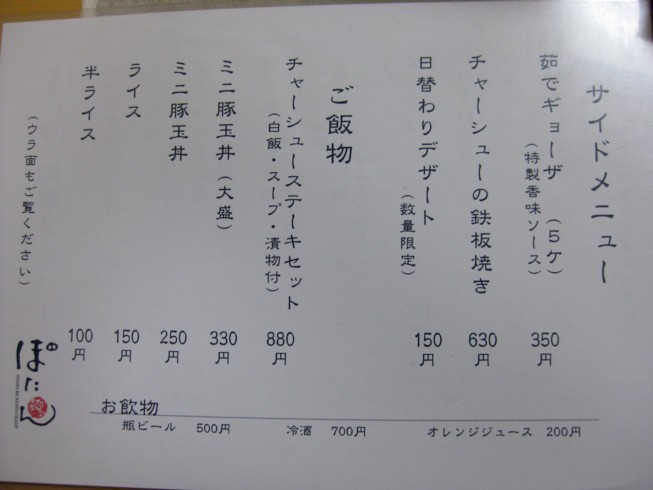 サイドメニュー
茹でギョーザ（5ケ） 350円
（特製香味ソース）
チャーシューの鉄板焼き 630円
日替わりデザート 150円
（数量限定）
ご飯物
チャーシューステーキセット 880円
（白飯・スープ・漬物付）
ミニ豚玉丼（大盛） 330円
ミニ豚玉丼 250円
ライス 150円
半ライス 100円
（ウラ面もご覧ください）
お飲物
瓶ビール 500円 冷酒 700円 オレンジジュース 200円
ぽれん